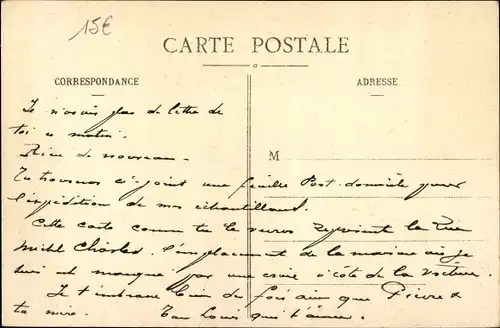 15€
CARTE POSTALE
CORRESPONDANCE
ADRESSE
M
Je n'avais pas de lettre de
toi ce matin.
Rien de nouveau.
Tu trouveras ci-joint une feuille Post. domicile pour
l'expédition de mes échantillons.
Cette carte comme tu le verras représente la rue
Michel Charles. l'emplacement de la maison où je
suis est marqué par une croix à côté de la voiture.
Je t'embrasse bien des fois ainsi que Pierre &
ta mère. Ton Louis qui t'aime.